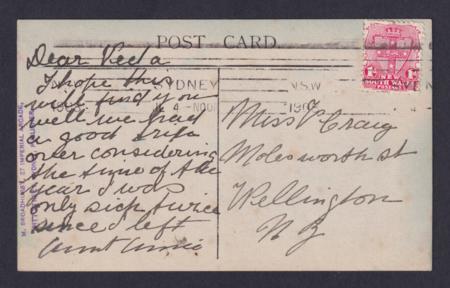 POST CARD
Dear Veda
I hope this
will find you
well we had
a good trip
over considering
the time of the
year I was
only sick twice
since I left
Aunt Annie
SYDNEY
4-NOON
N.S.W.
190
NEW
SOUTH WALES
POSTAGE
1D
Miss V Craig
Molesworth st
Wellington
N Z
M. BROADHURST, 57 IMPERIAL ARCADE,